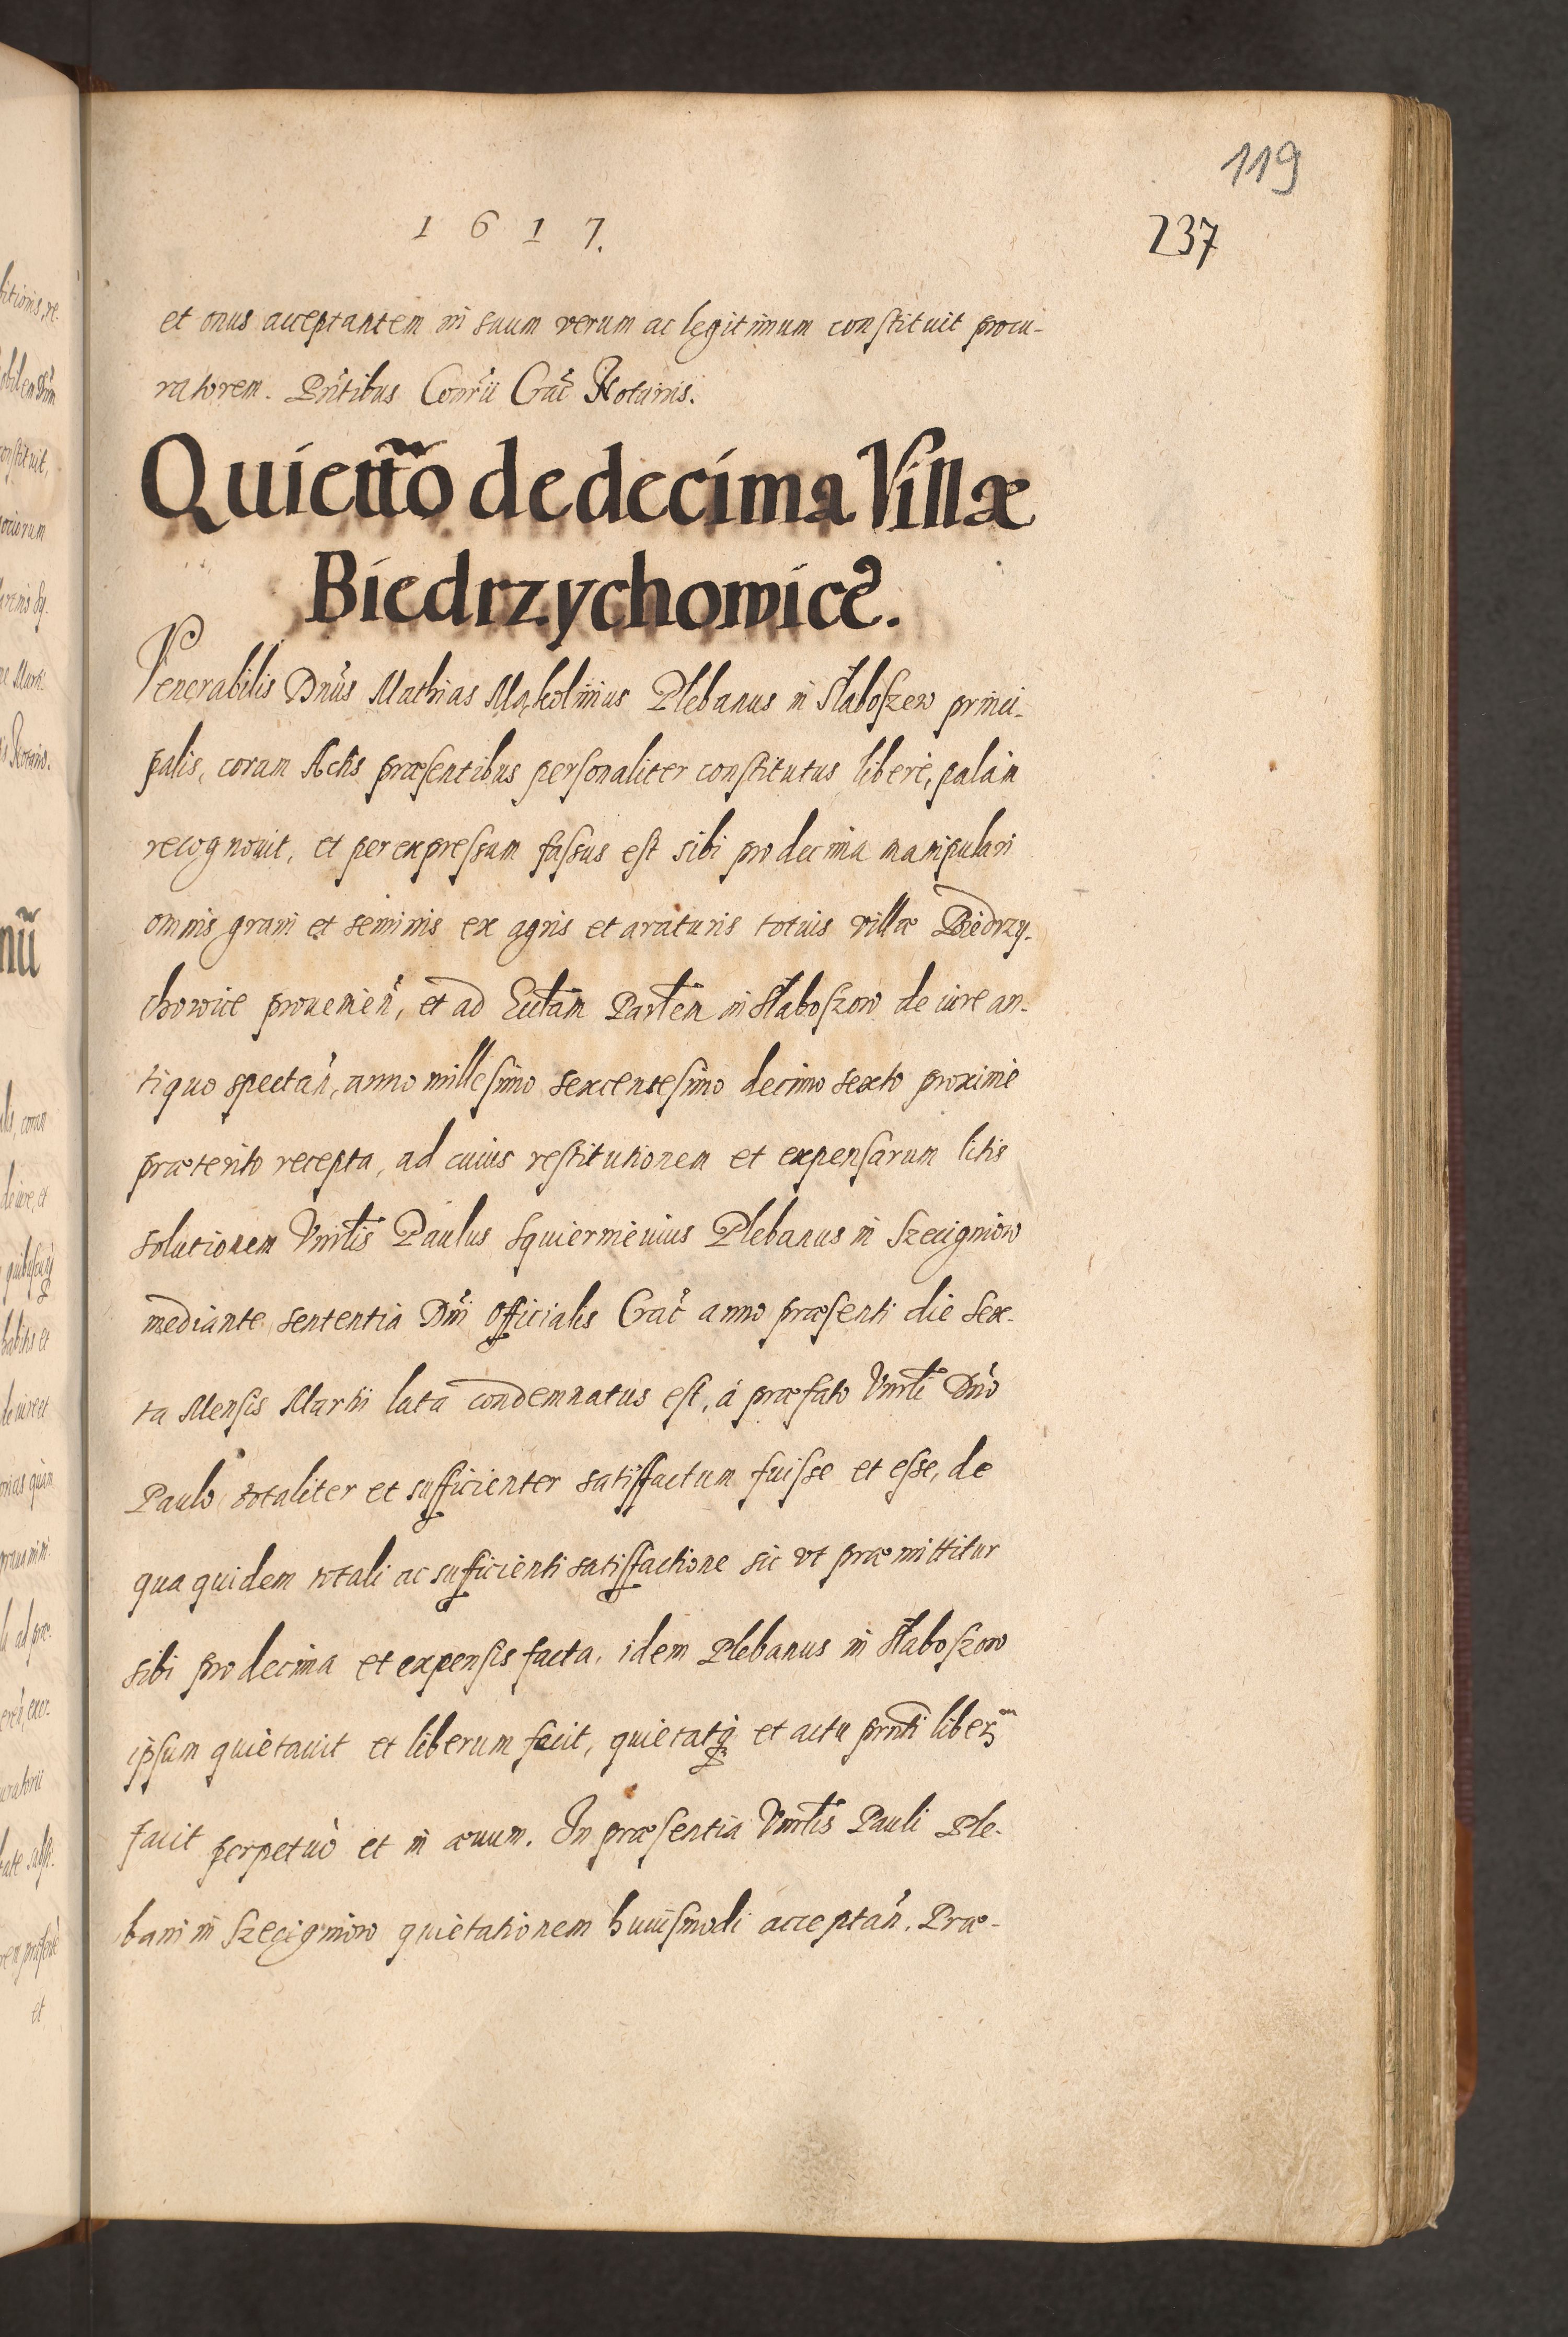 119
1 6 1 7.
237
et onus acceptantem in suum verum ac legitimum constituit procu-
ratorem. Pñtibus Consrii Crac̃ Notariis.
Quietĩo de decima Villæ
Biedrzychowicẽ.
Venerabilis Dnũs Mathias Mąkolinius Plebanus in Słaboszew princi-
palis, coram Actis præsentibus personaliter constitutus liberè, palàm
recognouit, et per expressum fassus est sibi pro decima manipulari
omnis grani et seminis ex agris et araturis totius villæ Biedrzy-
chowice prouenien̄, et ad Eccł̃am Parł̃em in Słaboszow de iure an-
tiquo spectan̄, anno millesimo sexcentesimo decimo sexto proximè
præterito recepta, ad cuius restitutionem et expensarum litis
solutionem Vnrłis Paulus Squiernieuius Plebanus in Szczigniow
mediante sententia Dñi Officialis Crac̃ anno præsenti die sex-
ta Mensis Martii lata condemnatus est, à præfato Vnrłi Dñо
Paulo totaliter et sufficienter satisfactum fuisse et esse, de
qua quidem totali ac sufficienti satisfactione sic vt præmittitur
sibi pro decima et expensis facta, idem Plebanus in Słaboszow
ipsum quietauit et liberum fecit, quietatq̨ et actu prñti liberũ
facit perpetuò et in æuum. In præsentia Vnrłis Pauli Ple-
bani in Szczigniow quietationem huiusmodi acceptan̄. Præ-